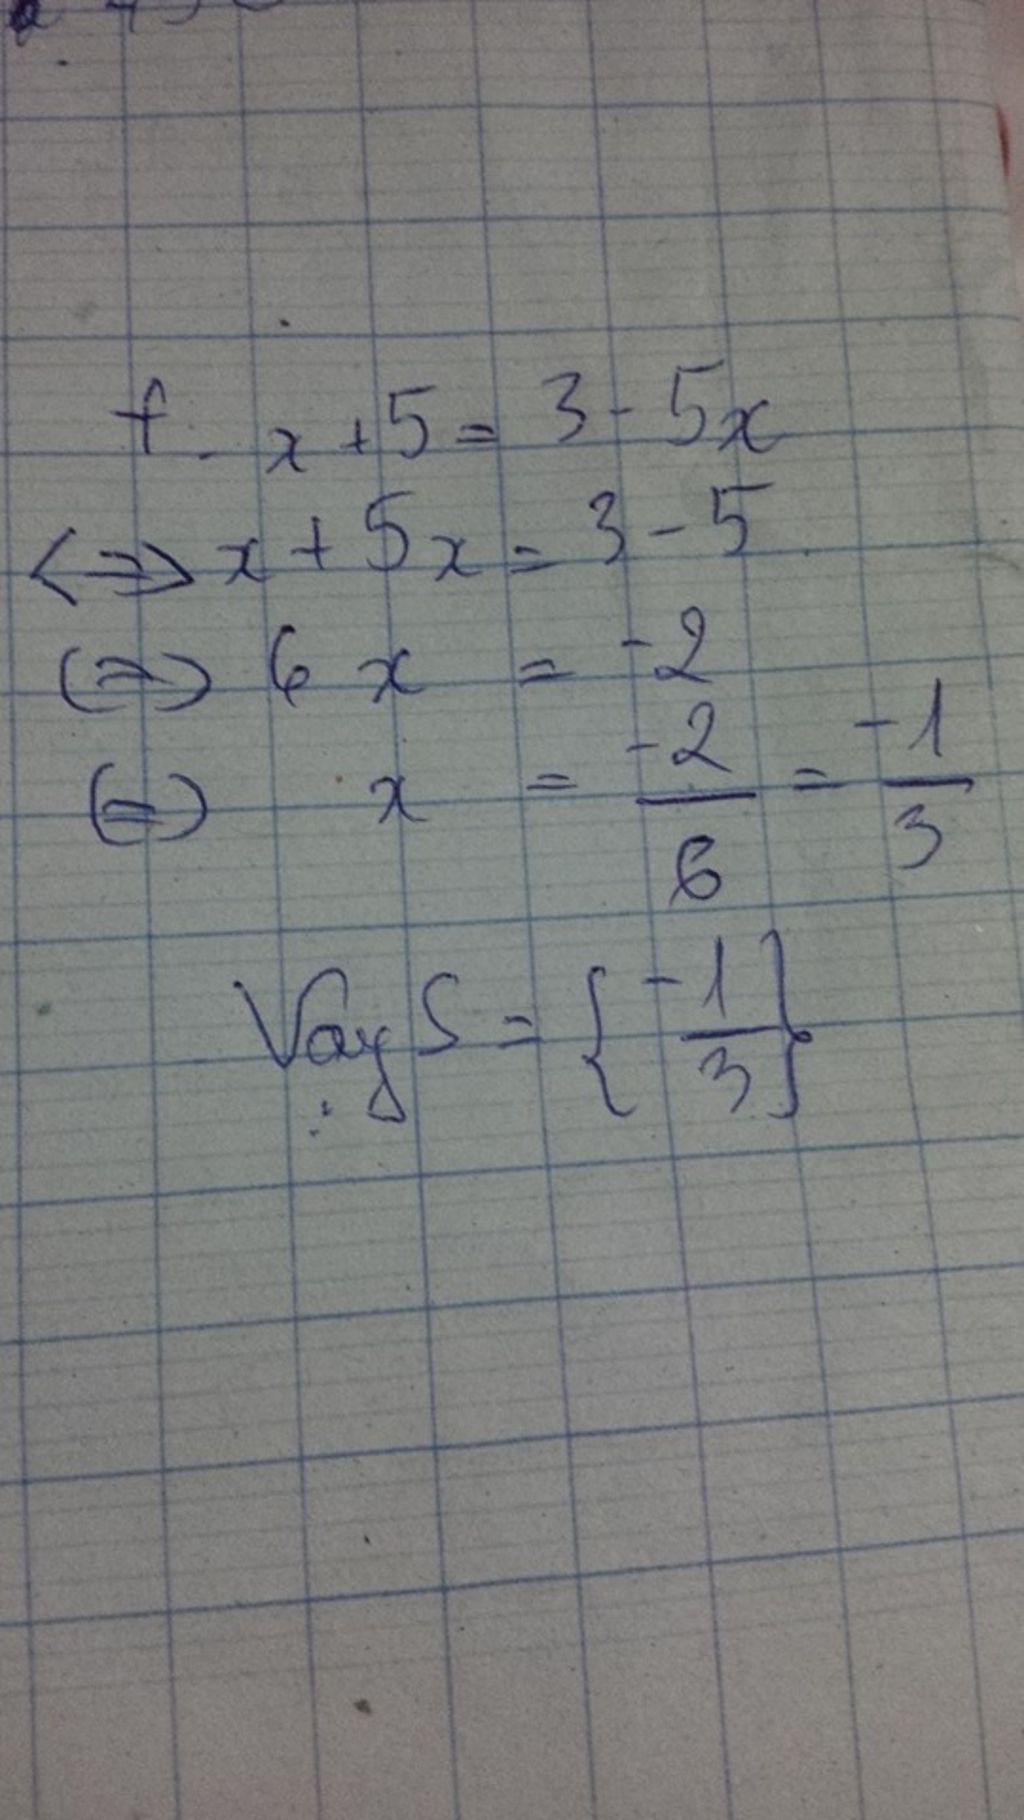 f. x + 5 = 3 - 5x
<=> x + 5x = 3 - 5
(=) 6x = -2
(=) x = -2/6 = -1/3
Vậy S = {-1/3}